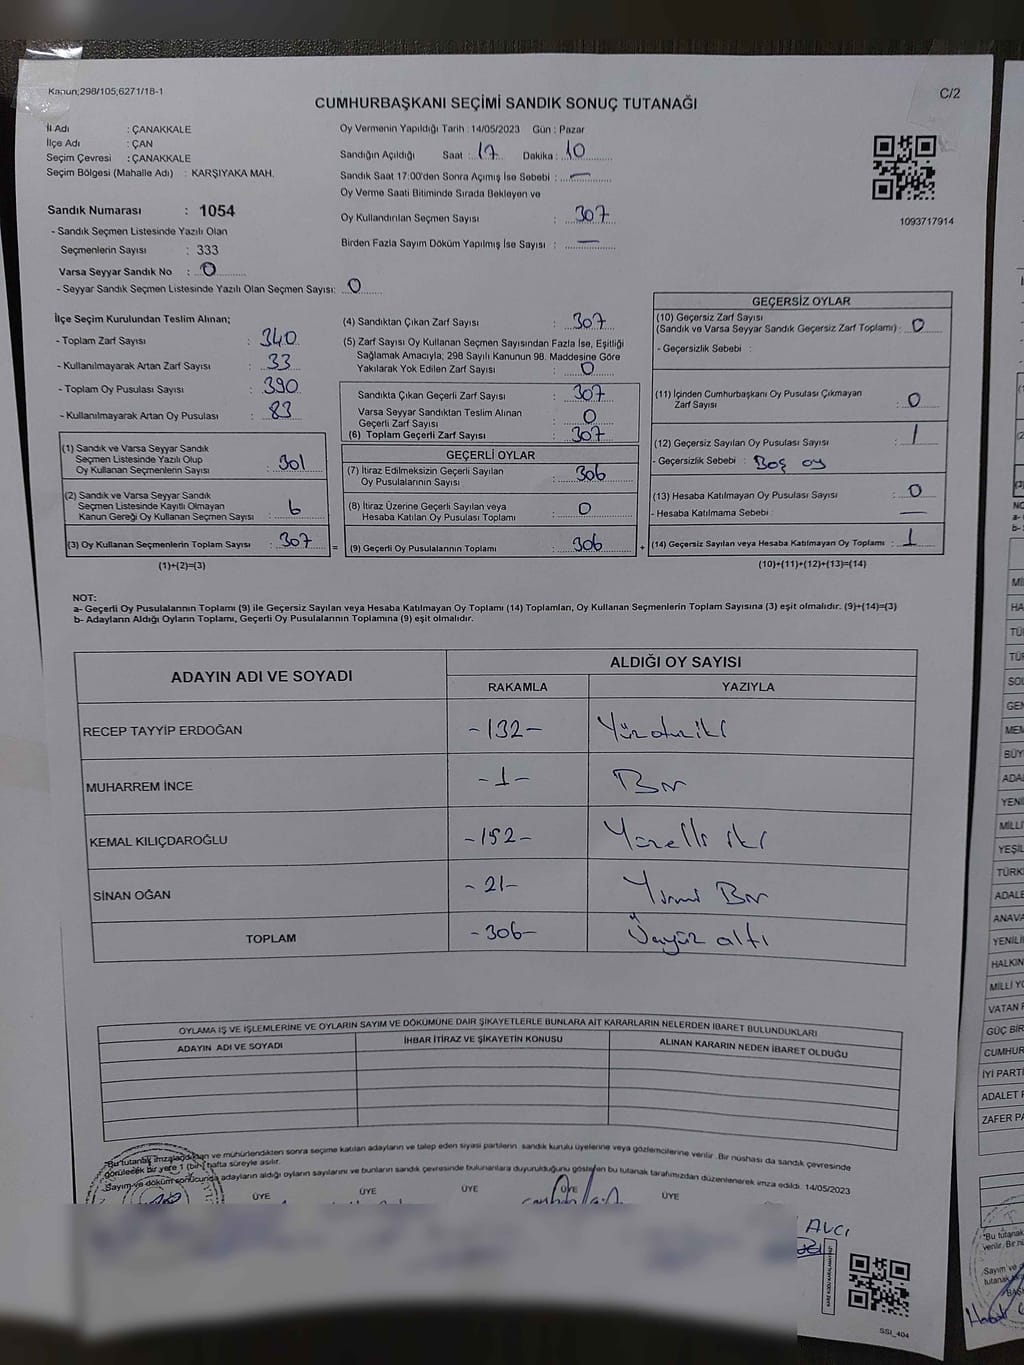 Kanun;298/105,6271/18-1
C/2
CUMHURBAŞKANI SEÇİMİ SANDIK SONUÇ TUTANAĞI
İl Adı : ÇANAKKALE
İlçe Adı : ÇAN
Seçim Çevresi : ÇANAKKALE
Seçim Bölgesi (Mahalle Adı) : KARŞIYAKA MAH.
Oy Vermenin Yapıldığı Tarih : 14/05/2023 Gün : Pazar
Sandığın Açıldığı Saat : 17 Dakika : 10
Sandık Saat 17:00'den Sonra Açımış İse Sebebi : —
Oy Verme Saati Bitiminde Sırada Bekleyen ve
Oy Kullandırılan Seçmen Sayısı : 307
Birden Fazla Sayım Döküm Yapılmış İse Sayısı : —
1093717914
Sandık Numarası : 1054
- Sandık Seçmen Listesinde Yazılı Olan
Seçmenlerin Sayısı : 333
Varsa Seyyar Sandık No : 0
- Seyyar Sandık Seçmen Listesinde Yazılı Olan Seçmen Sayısı: 0
İlçe Seçim Kurulundan Teslim Alınan;
- Toplam Zarf Sayısı : 340
- Kullanılmayarak Artan Zarf Sayısı : 33
- Toplam Oy Pusulası Sayısı : 390
- Kullanılmayarak Artan Oy Pusulası : 83
(1) Sandık ve Varsa Seyyar Sandık
Seçmen Listesinde Yazılı Olup
Oy Kullanan Seçmenlerin Sayısı : 301
(2) Sandık ve Varsa Seyyar Sandık
Seçmen Listesinde Kayıtlı Olmayan
Kanun Gereği Oy Kullanan Seçmen Sayısı : 6
(3) Oy Kullanan Seçmenlerin Toplam Sayısı : 307
(1)+(2)=(3)
(4) Sandıktan Çıkan Zarf Sayısı : 307
(5) Zarf Sayısı Oy Kullanan Seçmen Sayısından Fazla İse, Eşitliği
Sağlamak Amacıyla; 298 Sayılı Kanunun 98. Maddesine Göre
Yakılarak Yok Edilen Zarf Sayısı : 0
Sandıkta Çıkan Geçerli Zarf Sayısı : 307
Varsa Seyyar Sandıktan Teslim Alınan
Geçerli Zarf Sayısı : 0
(6) Toplam Geçerli Zarf Sayısı : 307
GEÇERLİ OYLAR
(7) İtiraz Edilmeksizin Geçerli Sayılan
Oy Pusulalarının Sayısı : 306
(8) İtiraz Üzerine Geçerli Sayılan veya
Hesaba Katılan Oy Pusulası Toplamı : 0
= (9) Geçerli Oy Pusulalarının Toplamı : 306 +
GEÇERSİZ OYLAR
(10) Geçersiz Zarf Sayısı
(Sandık ve Varsa Seyyar Sandık Geçersiz Zarf Toplamı) : 0
- Geçersizlik Sebebi :
(11) İçinden Cumhurbaşkanı Oy Pusulası Çıkmayan
Zarf Sayısı : 0
(12) Geçersiz Sayılan Oy Pusulası Sayısı : 1
- Geçersizlik Sebebi : Boş oy
(13) Hesaba Katılmayan Oy Pusulası Sayısı : 0
- Hesaba Katılmama Sebebi : —
(14) Geçersiz Sayılan veya Hesaba Katılmayan Oy Toplamı : 1
(10)+(11)+(12)+(13)=(14)
NOT:
a- Geçerli Oy Pusulalarının Toplamı (9) ile Geçersiz Sayılan veya Hesaba Katılmayan Oy Toplamı (14) Toplamları, Oy Kullanan Seçmenlerin Toplam Sayısına (3) eşit olmalıdır. (9)+(14)=(3)
b- Adayların Aldığı Oyların Toplamı, Geçerli Oy Pusulalarının Toplamına (9) eşit olmalıdır.
ADAYIN ADI VE SOYADI
ALDIĞI OY SAYISI
RAKAMLA YAZIYLA
RECEP TAYYİP ERDOĞAN -132- Yüzotuziki
MUHARREM İNCE -1- Bir
KEMAL KILIÇDAROĞLU -152- Yüzelli iki
SİNAN OĞAN -21- Yirmi Bir
TOPLAM -306- Üçyüz altı
OYLAMA İŞ VE İŞLEMLERİNE VE OYLARIN SAYIM VE DÖKÜMÜNE DAİR ŞİKAYETLERLE BUNLARA AİT KARARLARIN NELERDEN İBARET BULUNDUKLARI
ADAYIN ADI VE SOYADI İHBAR İTİRAZ VE ŞİKAYETİN KONUSU ALINAN KARARIN NEDEN İBARET OLDUĞU
"Bu tutanak imzalandıktan ve mühürlendikten sonra seçime katılan adayların ve talep eden siyasi partilerin sandık kurulu üyelerine veya gözlemcilerine verilir. Bir nüshası da sandık çevresinde
görülecek bir yere 1 (bir) hafta süreyle asılır.
Sayım ve döküm sonucunda adayların aldığı oyların sayılarını ve bunların sandık çevresinde bulunanlara duyurulduğunu gösteren bu tutanak tarafımızdan düzenlenerek imza edildi. 14/05/2023
ÜYE ÜYE ÜYE ÜYE ÜYE
AVCI
SSI_404